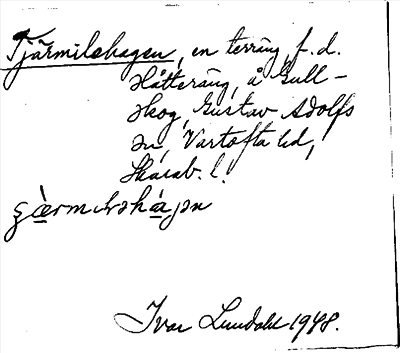 Tjärmilehagen, en terräng, f.d.
slåtteräng, å Gull-
skog, Gustav Adolfs
sn, Vartofta hd,
Skarab. l.
Ivar Lundahl 1948.